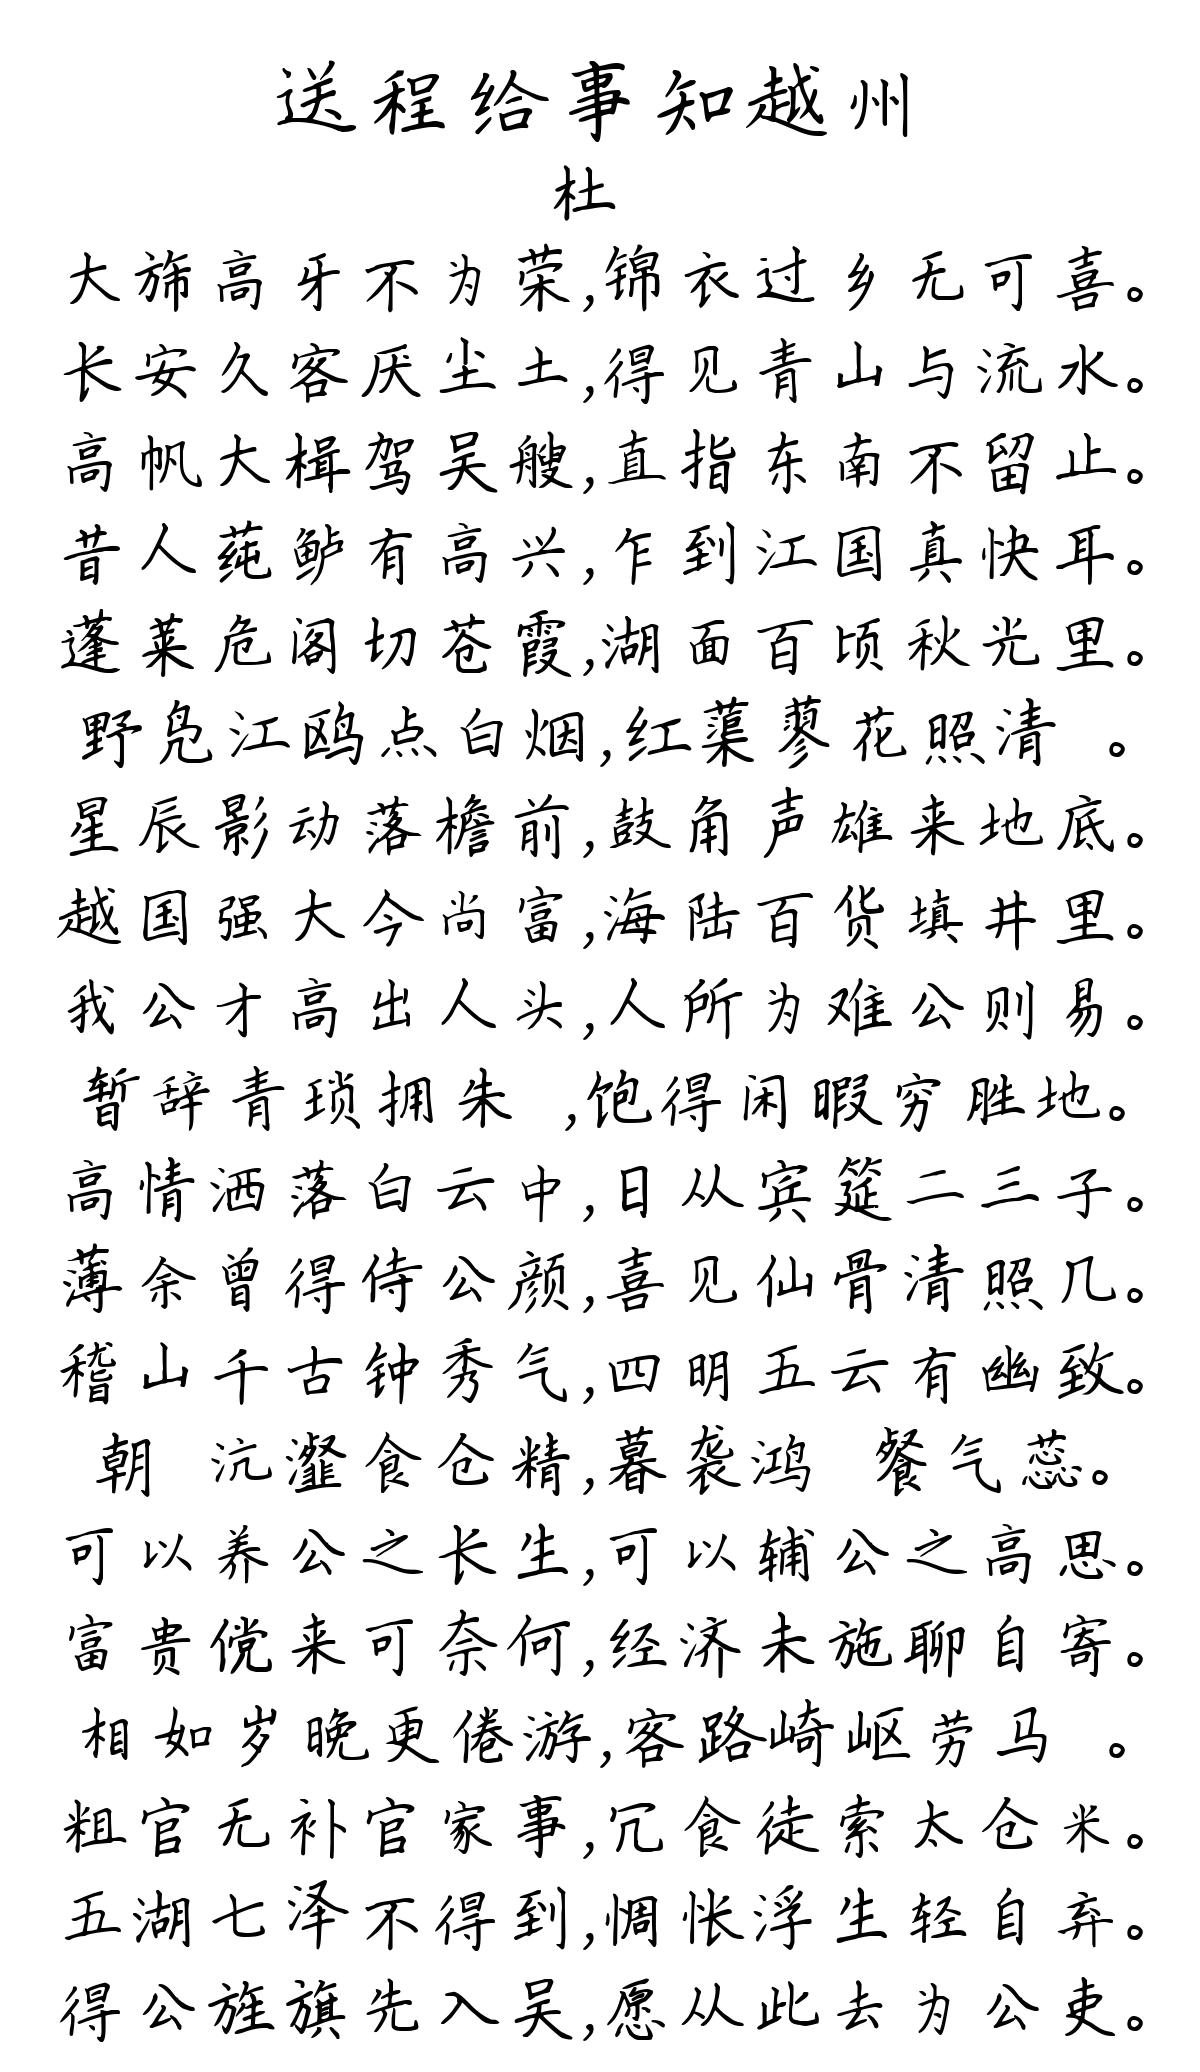 送程给事知越州
杜
大旆高牙不为荣,锦衣过乡无可喜。
长安久客厌尘土,得见青山与流水。
高帆大楫驾吴艘,直指东南不留止。
昔人莼鲈有高兴,乍到江国真快耳。
蓬莱危阁切苍霞,湖面百顷秋光里。
野凫江鸥点白烟,红蕖蓼花照清 。
星辰影动落檐前,鼓角声雄来地底。
越国强大今尚富,海陆百货填井里。
我公才高出人头,人所为难公则易。
暂辞青琐拥朱 ,饱得闲暇穷胜地。
高情洒落白云中,日从宾筵二三子。
薄余曾得侍公颜,喜见仙骨清照几。
稽山千古钟秀气,四明五云有幽致。
朝 沆瀣食仓精,暮袭鸿 餐气蕊。
可以养公之长生,可以辅公之高思。
富贵傥来可奈何,经济未施聊自寄。
相如岁晚更倦游,客路崎岖劳马 。
粗官无补官家事,冗食徒索太仓米。
五湖七泽不得到,惆怅浮生轻自弃。
得公旌旗先入吴,愿从此去为公吏。